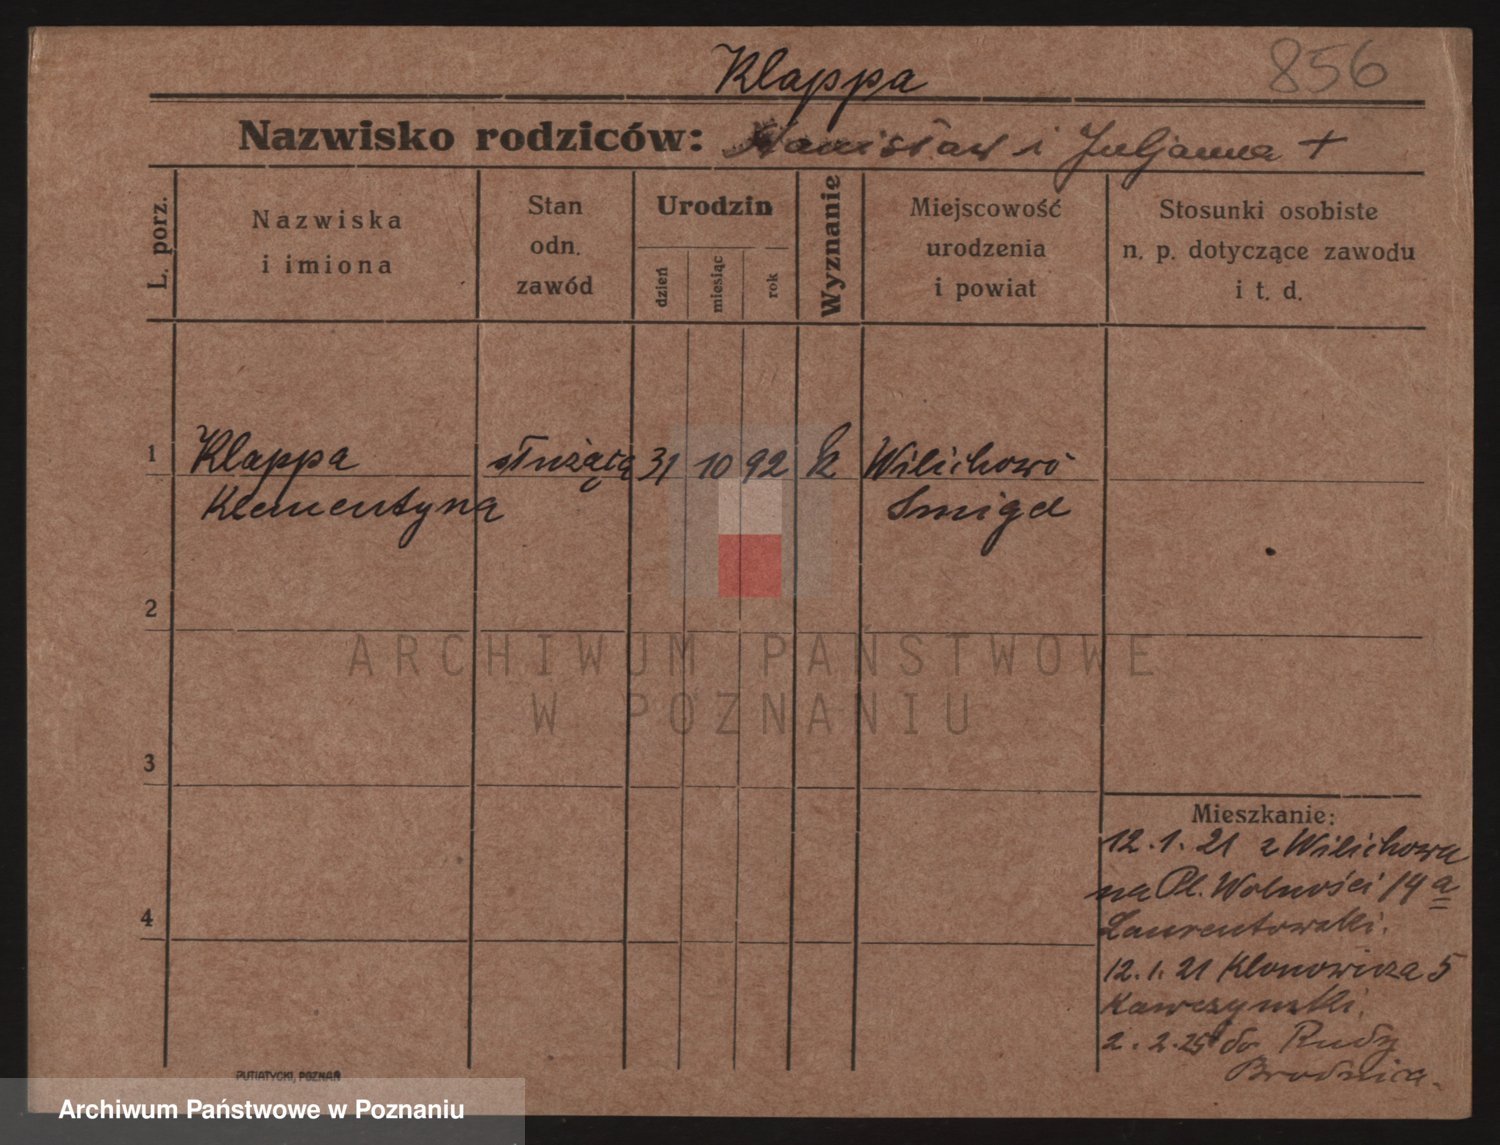 Klappa
856
Nazwisko rodziców: Stanisław i Juljanna +
L. porz.
Nazwiska
i imiona
Stan
odn.
zawód
Urodzin
dzień
miesiąc
rok
Wyznanie
Miejscowość
urodzenia
i powiat
Stosunki osobiste
n. p. dotyczące zawodu
i t. d.
1 Klappa służąca 31 10 92 k Wilichowo
Klementyna Smigel
2
ARCHIWUM PAŃSTWOWE
W POZNANIU
3
Mieszkanie:
12.1.21 z Wilichowa
na Pl. Wolności 14 a
4
Laurentowski.
12.1.21 Klonowicza 5
Kawczynski.
2.2.25 do Rudy
Brodnica.
PUTIATYCKI, POZNAŃ
Archiwum Państwowe w Poznaniu